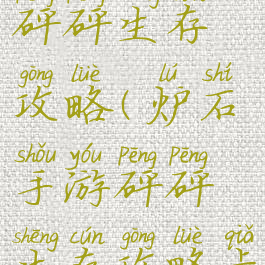 砰砰生存
gōng lüè lú shí
攻略(炉石
shǒu yóu Pēng Pēng
手游砰砰
shēng cún gōng lüè qiǎ